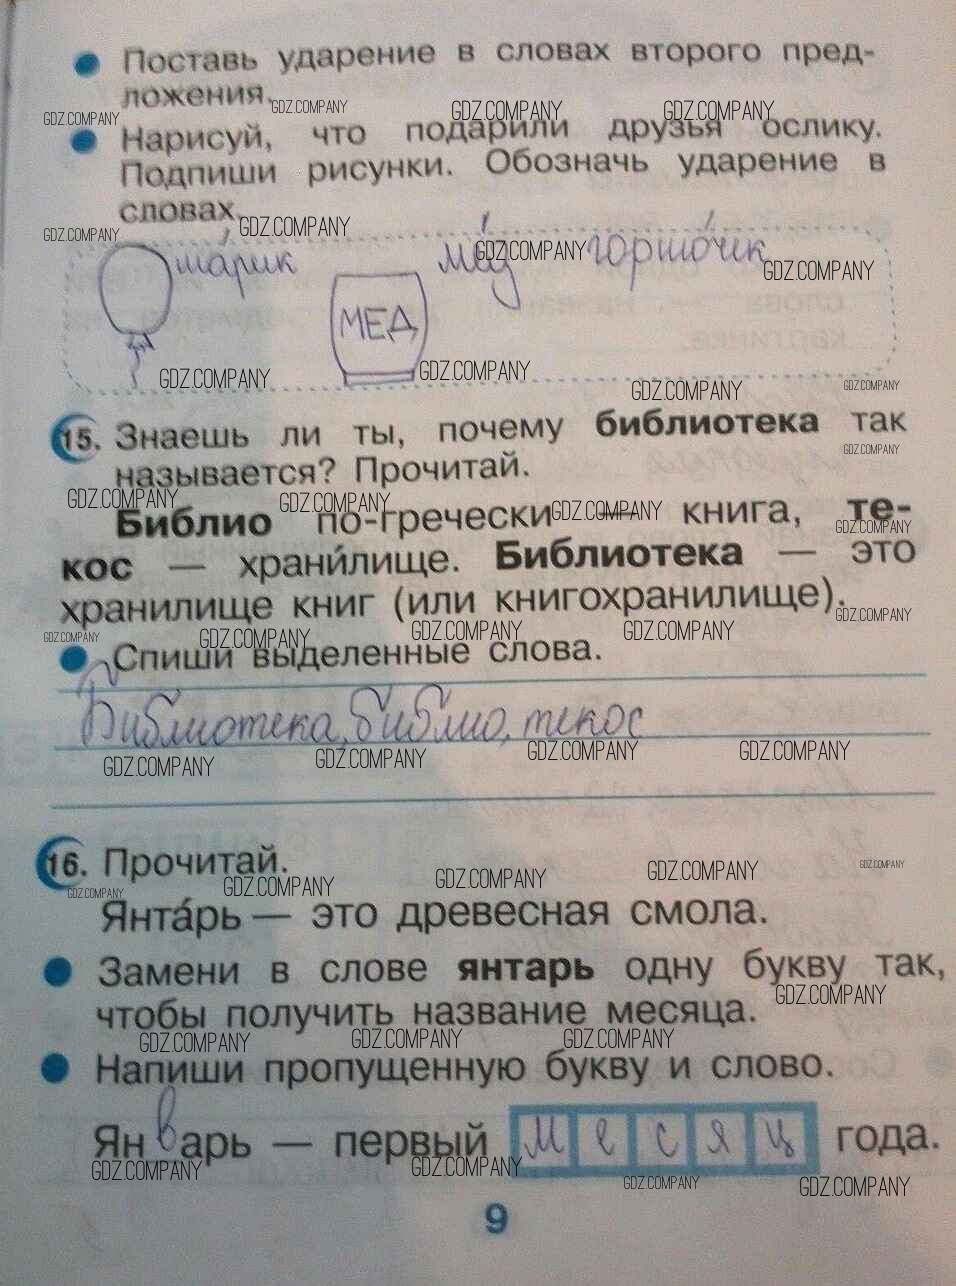 Поставь ударение в словах второго пред-
ложения.
GDZ.COMPANY GDZ.COMPANY GDZ.COMPANY GDZ.COMPANY
Нарисуй, что подарили друзья ослику.
Подпиши рисунки. Обозначь ударение в
словах.
GDZ.COMPANY GDZ.COMPANY
ша́рик ме́д горшо́чик
GDZ.COMPANY GDZ.COMPANY
МЕД
GDZ.COMPANY GDZ.COMPANY GDZ.COMPANY GDZ.COMPANY
15. Знаешь ли ты, почему библиотека так
называется? Прочитай.
GDZ.COMPANY
GDZ.COMPANY GDZ.COMPANY GDZ.COMPANY GDZ.COMPANY
Библио по-гречески — книга, те-
кос — храни́лище. Библиотека — это
хранилище книг (или книгохранилище).
GDZ.COMPANY GDZ.COMPANY GDZ.COMPANY GDZ.COMPANY GDZ.COMPANY
Спиши выделенные слова.
Библиотека, библио, текос
GDZ.COMPANY GDZ.COMPANY GDZ.COMPANY GDZ.COMPANY
16. Прочитай.
GDZ.COMPANY GDZ.COMPANY GDZ.COMPANY GDZ.COMPANY GDZ.COMPANY
Янта́рь — это древесная смола.
Замени в слове янтарь одну букву так,
чтобы получить название месяца.
GDZ.COMPANY
GDZ.COMPANY GDZ.COMPANY GDZ.COMPANY
Напиши пропущенную букву и слово.
Январь — первый месяц года.
GDZ.COMPANY GDZ.COMPANY GDZ.COMPANY GDZ.COMPANY
9